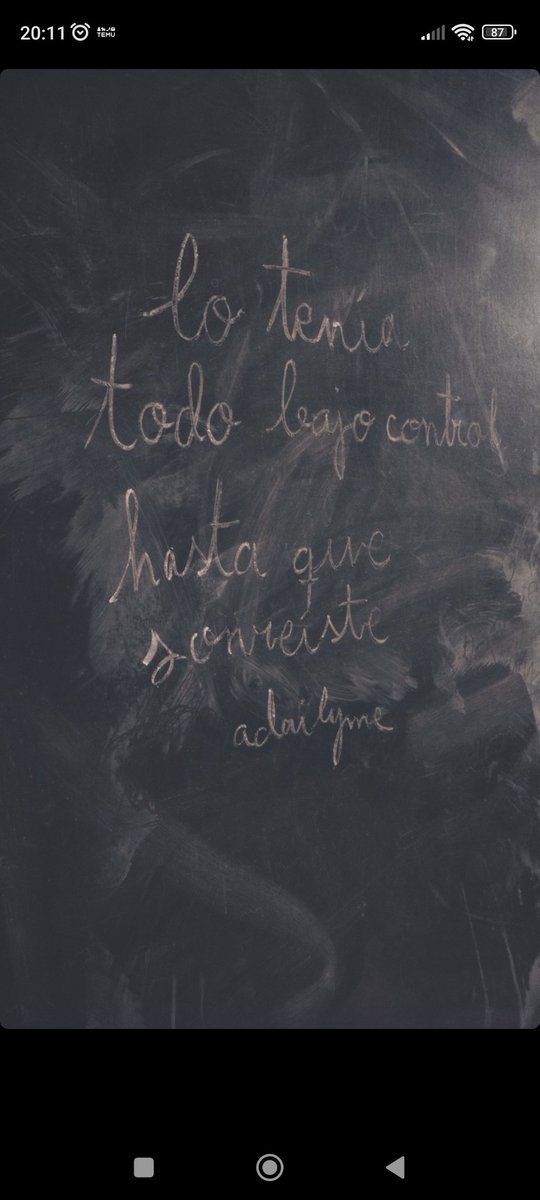 20:11
TEMU
87
lo tenía
todo bajo control
hasta que
sonreíste
adailyme